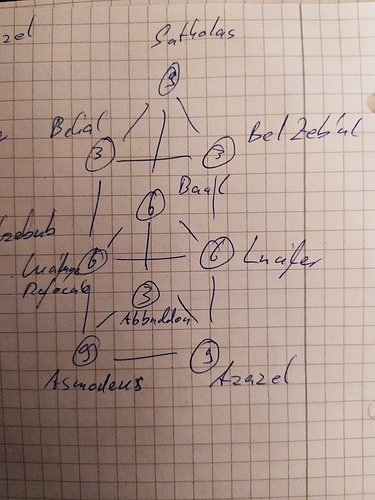 zel
Satholas
9
Belial
Bel Zeb'ul
3
3
Baal
6
zebub
Lucifer
6
6
Rofocale
3
Abbaddon
9
9
Asmodeus
Azazel